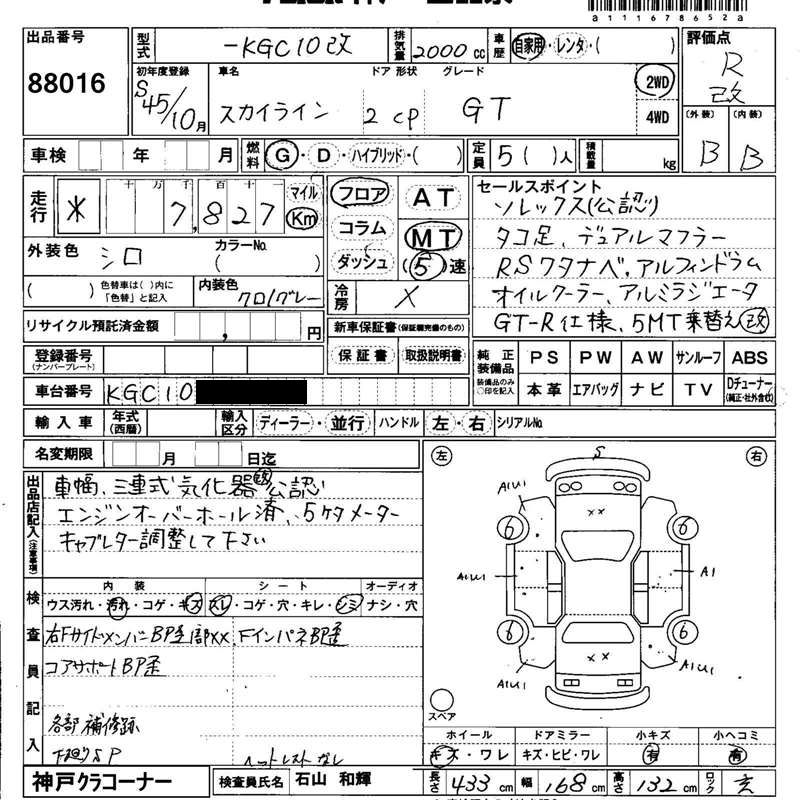 a1116786 52a
出品番号 88016
型式 -KGC10改 排気量 2000cc 車歴 自家用・レンタ・( )
評価点 R 改
初年度登録 S45/10月 車名 スカイライン ドア 形状 2 CP グレード GT 2WD 4WD
(外装) B (内装) B
車検 年 月 燃料 G・D・ハイブリッド・( ) 定員 5( )人 積載量 kg
走行 十 万 千 百 十 一 ※ 7,827 マイル Km
フロア コラム ダッシュ AT MT (5)速
セールスポイント
ソレックス(公認)
タコ足、デュアルマフラー
RSワタナベ、アルフィンドラム
オイルクーラー、アルミラジエータ
GT-R仕様、5MT乗替え改
外装色 シロ カラーNo. ( )
( ) 色替車は( )内に「色替」と記入 内装色 クロ/グレー
冷房 ×
リサイクル預託済金額 , 円
新車保証書(保証継続完備のもの)
保証書 取扱説明書
登録番号 (ナンバープレート)
純正装備品 装備品のみ○印を記入 PS PW AW サンルーフ ABS
本革 エアバッグ ナビ TV Dチューナー (純正・社外含む)
車台番号 KGC10
輸入車 年式(西暦) 輸入区分 ディーラー・並行 ハンドル 左・右 シリアルNo.
名変期限 月 日迄
出品店記入(注意事項)
車幅、三連式気化器改公認
エンジンオーバーホール済、5ケタメーター
キャブレター調整して下さい
検査員記入
内装 シート オーディオ
ウス汚れ・汚れ・コゲ・キズ スレ・コゲ・穴・キレ・シミ ナシ・穴
右FサイドメンバーBP歪部××、FインパネBP歪
コアサポートBP歪
各部 補修跡
下廻りSP
ヘッドレストなし
左 右
S
A1U1
××
6 6
A1U1 A1
6 6
××
A1U1 A1U1
スペア
ホイール ドアミラー 小キズ 小ヘコミ
キズ・ワレ キズ・ヒビ・ワレ 有 有
神戸クラコーナー 検査員氏名 石山 和輝 長さ 433cm 幅 168cm 高さ 132cm ロック 玄